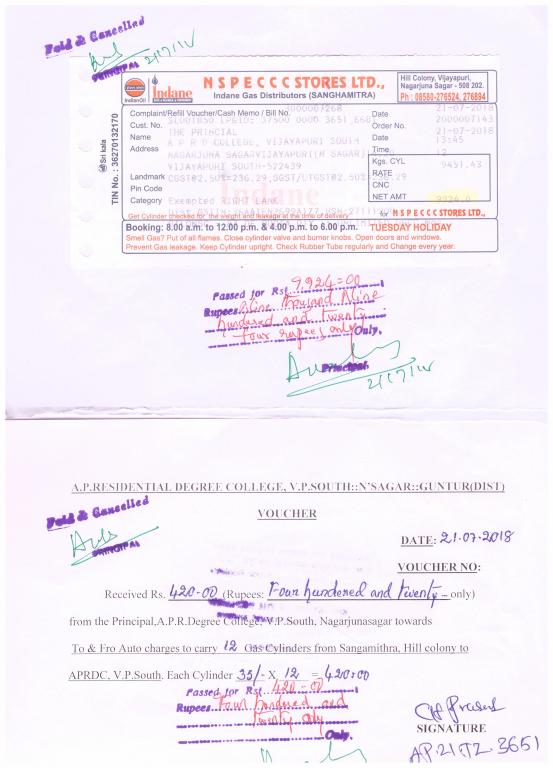 Paid & Cancelled
PRINCIPAL
21/7/18
IndianOil
Indane
NSPECCC STORES LTD.,
Indane Gas Distributors (SANGHAMITRA)
Hill Colony, Vijayapuri,
Nagarjuna Sagar - 508 202.
Ph : 08580-276524, 276894
Sri kala
TIN No. : 36270132170
Complaint/Refil Voucher/Cash Memo / Bill No. 3000007268
Date 21-07-2018
Cust. No.
Order No. 2000007143
Name THE PRINCIAL
Date 21-07-2018
13:45
Address A P R D COLLEGE, VIJAYAPURI SOUTH
Time
NAGARJUNA SAGARVIJAYAPURI(N SAGAR)
12
VIJAYAPURI SOUTH-522439
Kgs. CYL 9451.43
RATE
Landmark CGST@2.50%=236.29,SGST/UTGST@2.50%
CNC
Pin Code
NET AMT 9924.0
Category Exempted RIGHT BANK
Get Cylinder checked for the weight and leakage at the time of delivery
for NSPECCC STORES LTD.,
Booking: 8.00 a.m. to 12.00 p.m. & 4.00 p.m. to 6.00 p.m. TUESDAY HOLIDAY
Smell Gas? Put of all flames. Close cylinder valve and burner knobs. Open doors and windows.
Prevent Gas leakage. Keep Cylinder upright. Check Rubber Tube regularly and Change every year.
Passed for Rs. 9924=00
Rupees Nine thousand Nine
hundered and twenty
four rupees only Only.
Principal
21/7/18
A.P.RESIDENTIAL DEGREE COLLEGE, V.P.SOUTH::N'SAGAR::GUNTUR(DIST)
Paid & Cancelled
VOUCHER
PRINCIPAL
DATE: 21.07.2018
VOUCHER NO:
Received Rs. 420-00 (Rupees: Four hundered and twenty – only)
from the Principal,A.P.R.Degree College, V.P.South, Nagarjunasagar towards
To & Fro Auto charges to carry 12 Gas Cylinders from Sangamithra, Hill colony to
APRDC, V.P.South. Each Cylinder 35/- X 12 = 420=00
Passed for Rs. 420-00
Rupees Four hundered and
twenty only
Only.
SIGNATURE
AP.21.TZ.3651